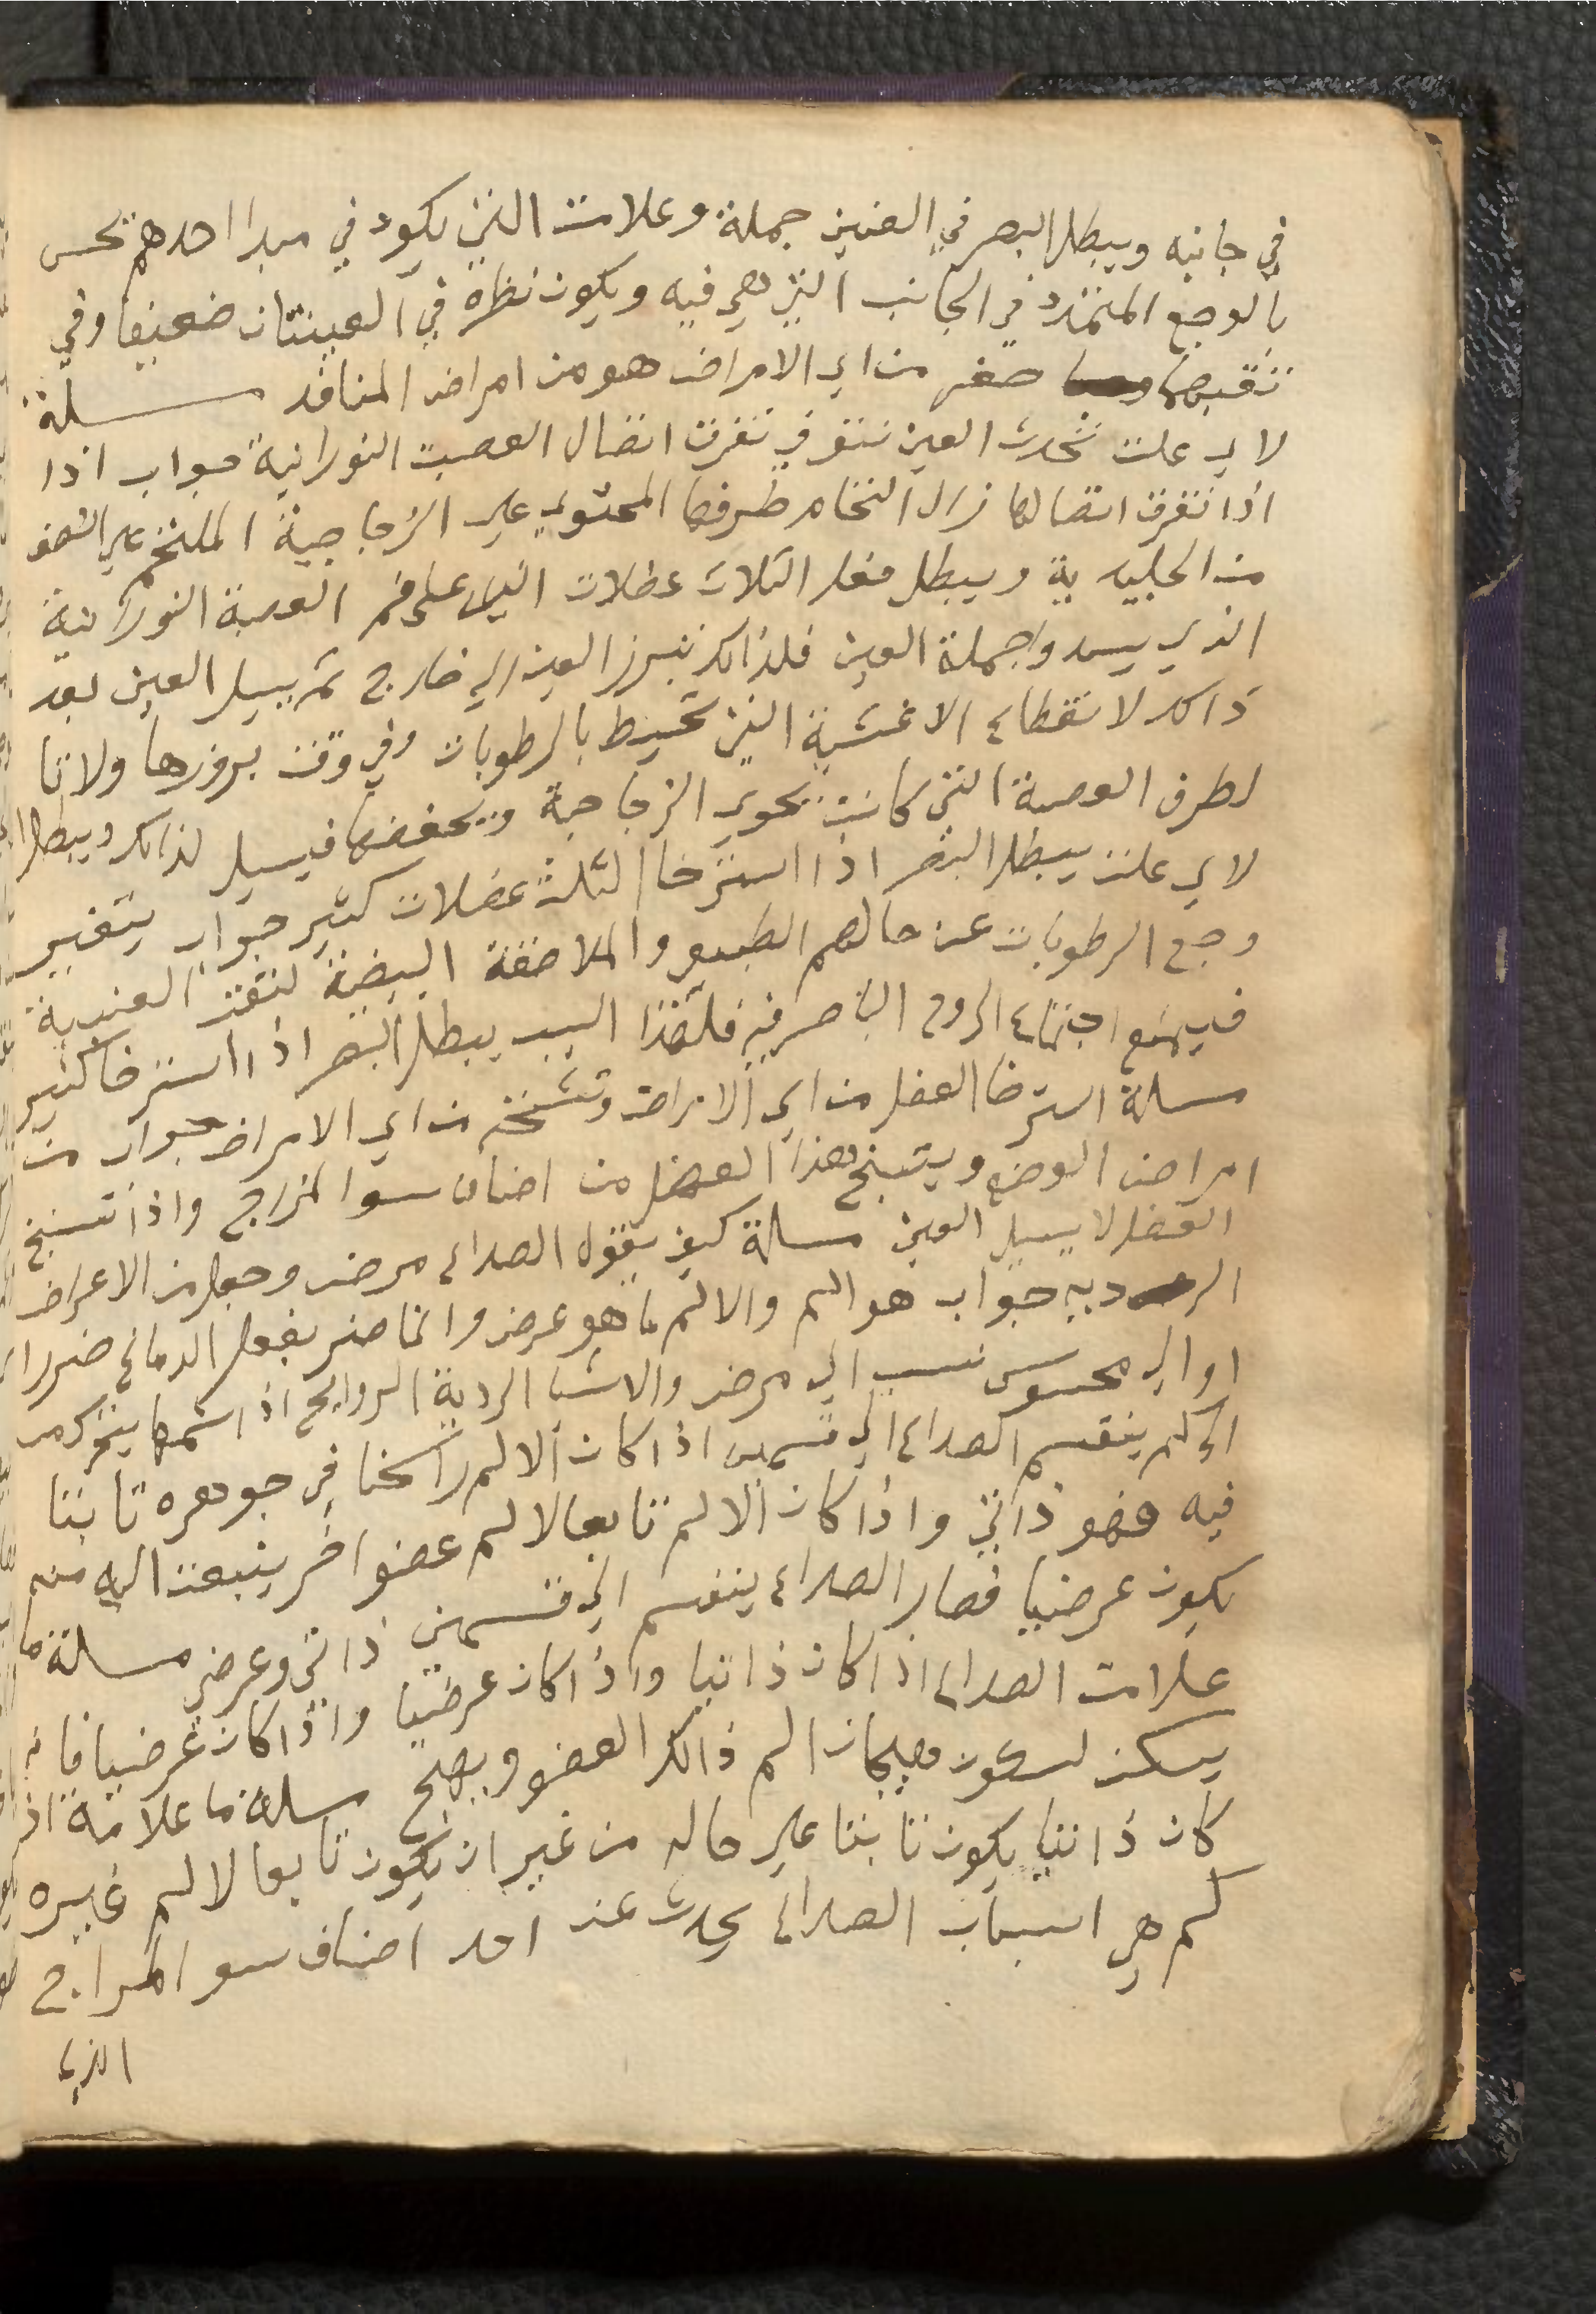 في جانبه ويبطل البصر في العينين جملة وعلامت التي يكون في مبدا احدهم تحس
بالوجع المتمدد في الجانب التي هي فيه ويكون نظره في العينتان ضعيفا وفي
تقبضها صغر من اي الامراض هو من امراض المنافد مسلة
لاي علت تحدث العين نتو في تفرق اتصال العصبت النورانية جواب اذا
اذا تفرق اتصالها زال التحام طرفها المحتوي علي الزجاجية الملتحم علي النصف
من الجليدية ويبطل فعل الثلاث عظلات التي على فم العصبة النورانية
الذي يسدوا جملة العين فلذالك تبرز العين الي خارج ثم يسيل العين بعد
ذالك لانقطاع الاغشية التي تحيط بالرطوبات وفي وقت بروزها ولاتا
لطرف العصبة التي كانت تحوي الزجاجية ويحفضها فيسيل لذالك ويبطل
لاي علت يبطل البصر اذا استرخا الثلث عضلات كثير جواب يتغير
وجع الرطوبات عن حالهم الطبيع والملاصقة البيضية لثقت العنبية
فيمنع اجتماع الروح الباصر فيه فلهذا السبب يبطل البصر اذا استرخا كثير
مسلة استرخا العضل من اي الامراض وتشنجه من اي الامراض جواب من
امراض الوضع ويتشنج هذا العضل من اصناف سوا المزاج واذا تشنج
العضل لا يسيل العين مسلة كيف يقول الصداع مرض وجعل من الاعراض
الرديه جواب هو الم والالم ما هو عرض وانما ضر بفعل الدماغ ضررا
اوالي محسوس نسب الي مرض والاشيا الردية الروايح اذا شمها يتحرك من
الي كم ينقسم الصداع الي قسمين اذا كان الالم راسخا في جوهره ثابتا
فيه فهو ذاتي واذا كان الالم تابعا لالم عضو اخر ينبعت اليه منه
يكون عرضيا فصار الصداع ينقسم الي قسمين ذاتي وعرضي مسلة ما
علامت الصداع اذا كان ذاتيا واذا كان عرضيا واذا كان عرضيا فانه
يسكن لسكون هيجان الم ذالك العضو ويصح مسلة ما علامة اذ
كان ذاتيا يكون ثابتا علي حاله من غير ان يكون تابعا لالم غيره
كم هي اسباب الصداع يحدث عند احد اصناف سو المزاج